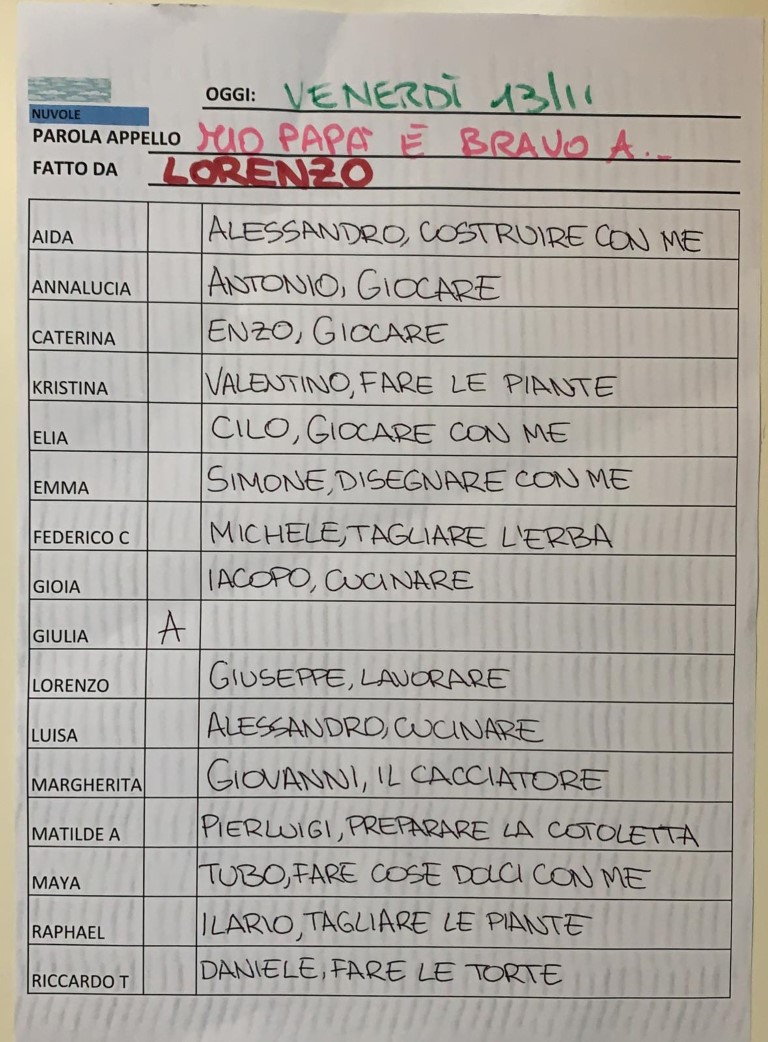 OGGI: VENERDÌ 13/11
NUVOLE
PAROLA APPELLO MIO PAPÀ È BRAVO A...
FATTO DA LORENZO
AIDA ALESSANDRO, COSTRUIRE CON ME
ANNALUCIA ANTONIO, GIOCARE
CATERINA ENZO, GIOCARE
KRISTINA VALENTINO, FARE LE PIANTE
ELIA CILO, GIOCARE CON ME
EMMA SIMONE, DISEGNARE CON ME
FEDERICO C MICHELE, TAGLIARE L'ERBA
GIOIA IACOPO, CUCINARE
GIULIA A
LORENZO GIUSEPPE, LAVORARE
LUISA ALESSANDRO, CUCINARE
MARGHERITA GIOVANNI, IL CACCIATORE
MATILDE A PIERLUIGI, PREPARARE LA COTOLETTA
MAYA TUBO, FARE COSE DOLCI CON ME
RAPHAEL ILARIO, TAGLIARE LE PIANTE
RICCARDO T DANIELE, FARE LE TORTE